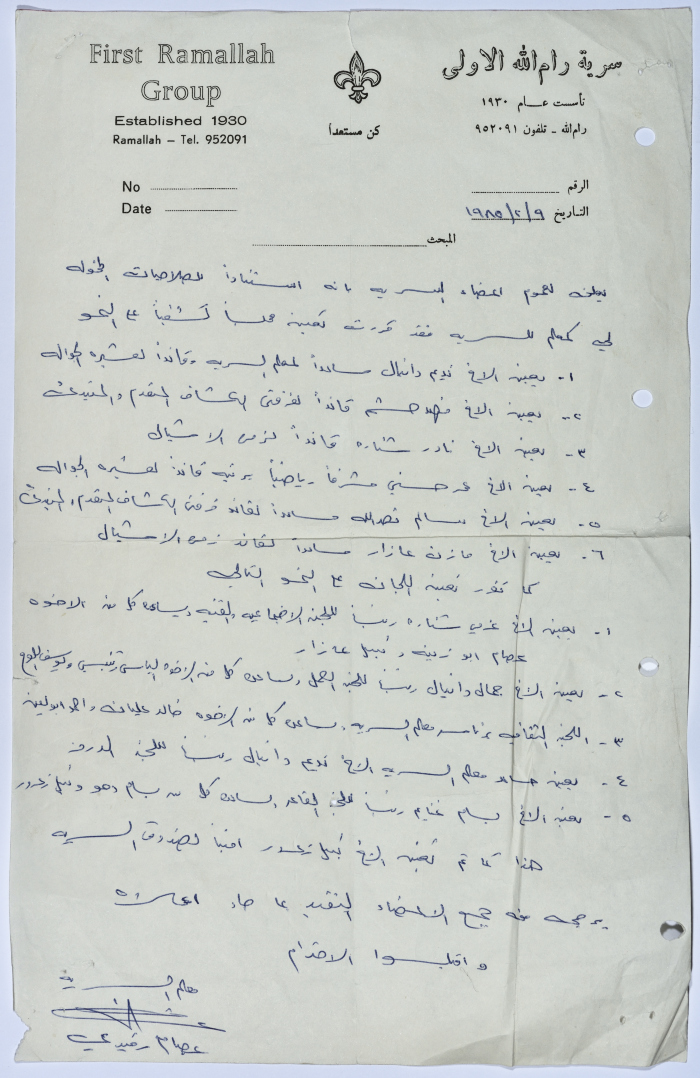 First Ramallah
Group
Established 1930
Ramallah – Tel. 952091
كن مستعداً
سرية رام الله الاولى
تأسست عـــام ١٩٣٠
رام الله ـ تلفون ٩٥٢٠٩١
No
Date
الرقم
التـاريخ ١٩٨٥/٢/٩
المبحث
يعلن لعموم اعضاء السرية بانه استناداً للصلاحيات المخولة
لي كمعلم للسرية فقد قررت تعيين مجلساً كشفياً على النحو
١- يعين الاخ نديم دانيال مساعداً لمعلم السرية وقائداً لعشيرة الجوالة
٢- يعين الاخ قائداً لفرقتي الكشاف المتقدم والمبتدئ
٣- يعين الاخ نادر شطارة قائداً لزمرة الاشبال
٤- يعين الاخ حسني مشرفاً رياضياً برتبة قائداً لعشيرة الجوالة
٥- يعين الاخ سالم نصرالله مساعداً لقائد فرقتي الكشاف المتقدم والمبتدئ
٦- يعين الاخ مازن عازار مساعداً لقائد زمرة الاشبال
كما تقرر تعيين اللجان على النحو التالي
١- يعين الاخ شطارة رئيساً للجنة الاجتماعية والفنية ويساعده كل من الاخوة
عصام ابو زينة ونبيل عازار
٢- يعين الاخ جمال دانيال رئيساً للجنة العمل ويساعده كل من الاخوة الياس ويوسف
٣- اللجنة الثقافية برئاسة معلم السرية ويساعده كل من الاخوة خالد عليان
٤- يعين مساعد معلم السرية الاخ نديم دانيال رئيساً للجنة
٥- يعين الاخ بسام غنايم رئيساً للجنة القاعة ويساعده كل من بسام ونبيل زعرور
هذا كما تم تعيين الاخ نبيل زعرور اميناً لصندوق السرية
يرجى من جميع الاعضاء التقيد بما جاء اعلاه
واقبلوا الاحترام
معلم السرية
عصام رفيدي